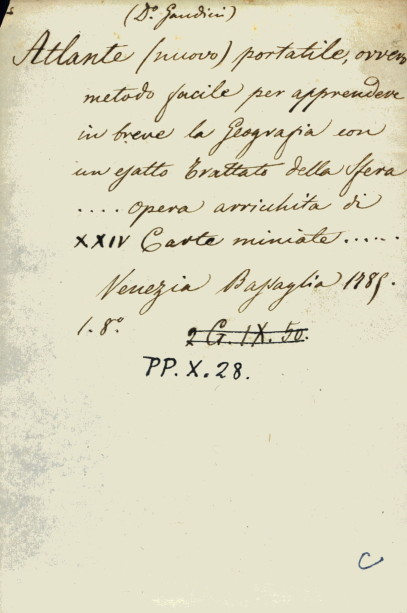 (D.º Gaudini)
Atlante (nuovo) portatile, ovvero
metodo facile per apprendere
in breve la Geografia con
un esatto trattato della Sfera
.... opera arricchita di
XXIV Carte miniate ......
Venezia Bassaglia 1785.
1. 8.º
2 G. IX. 50.
PP. X. 28.
C